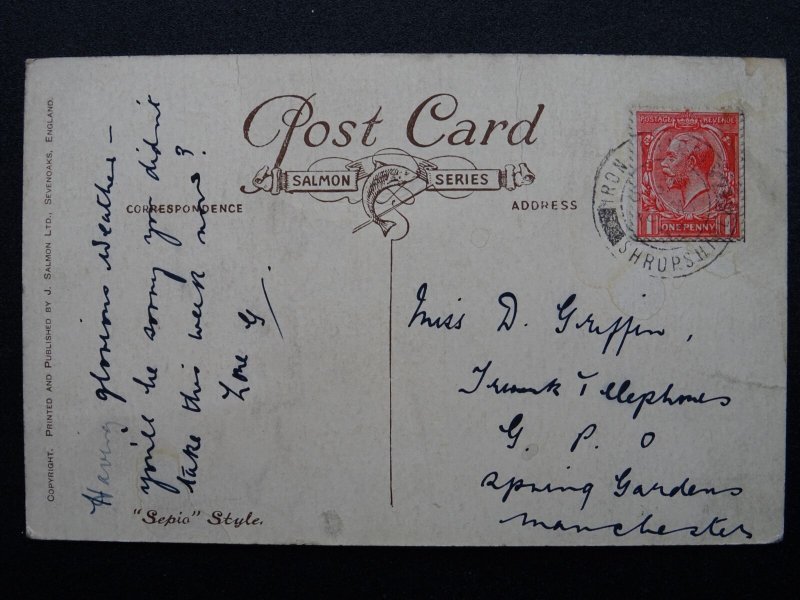 Post Card
SALMON SERIES
CORRESPONDENCE
ADDRESS
COPYRIGHT. PRINTED AND PUBLISHED BY J. SALMON LTD., SEVENOAKS, ENGLAND.
Having glorious weather –
you'll be sorry you didn't
take this week now?
Love G
"Sepio" Style.
POSTAGE REVENUE
ONE PENNY
IRON
SHROPSHI
Miss D. Griffin,
Trunk Telephones
G. P. O
Spring Gardens
Manchester